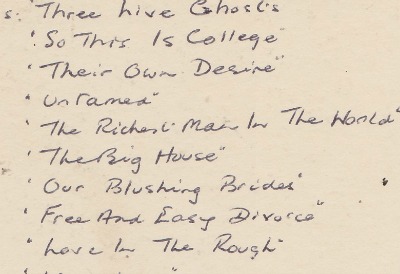 s. "Three Live Ghosts
"So This Is College"
"Their Own Desire"
"Untamed"
"The Richest Man In The World"
"The Big House"
"Our Blushing Brides"
"Free And Easy Divorce"
"Love In The Rough"